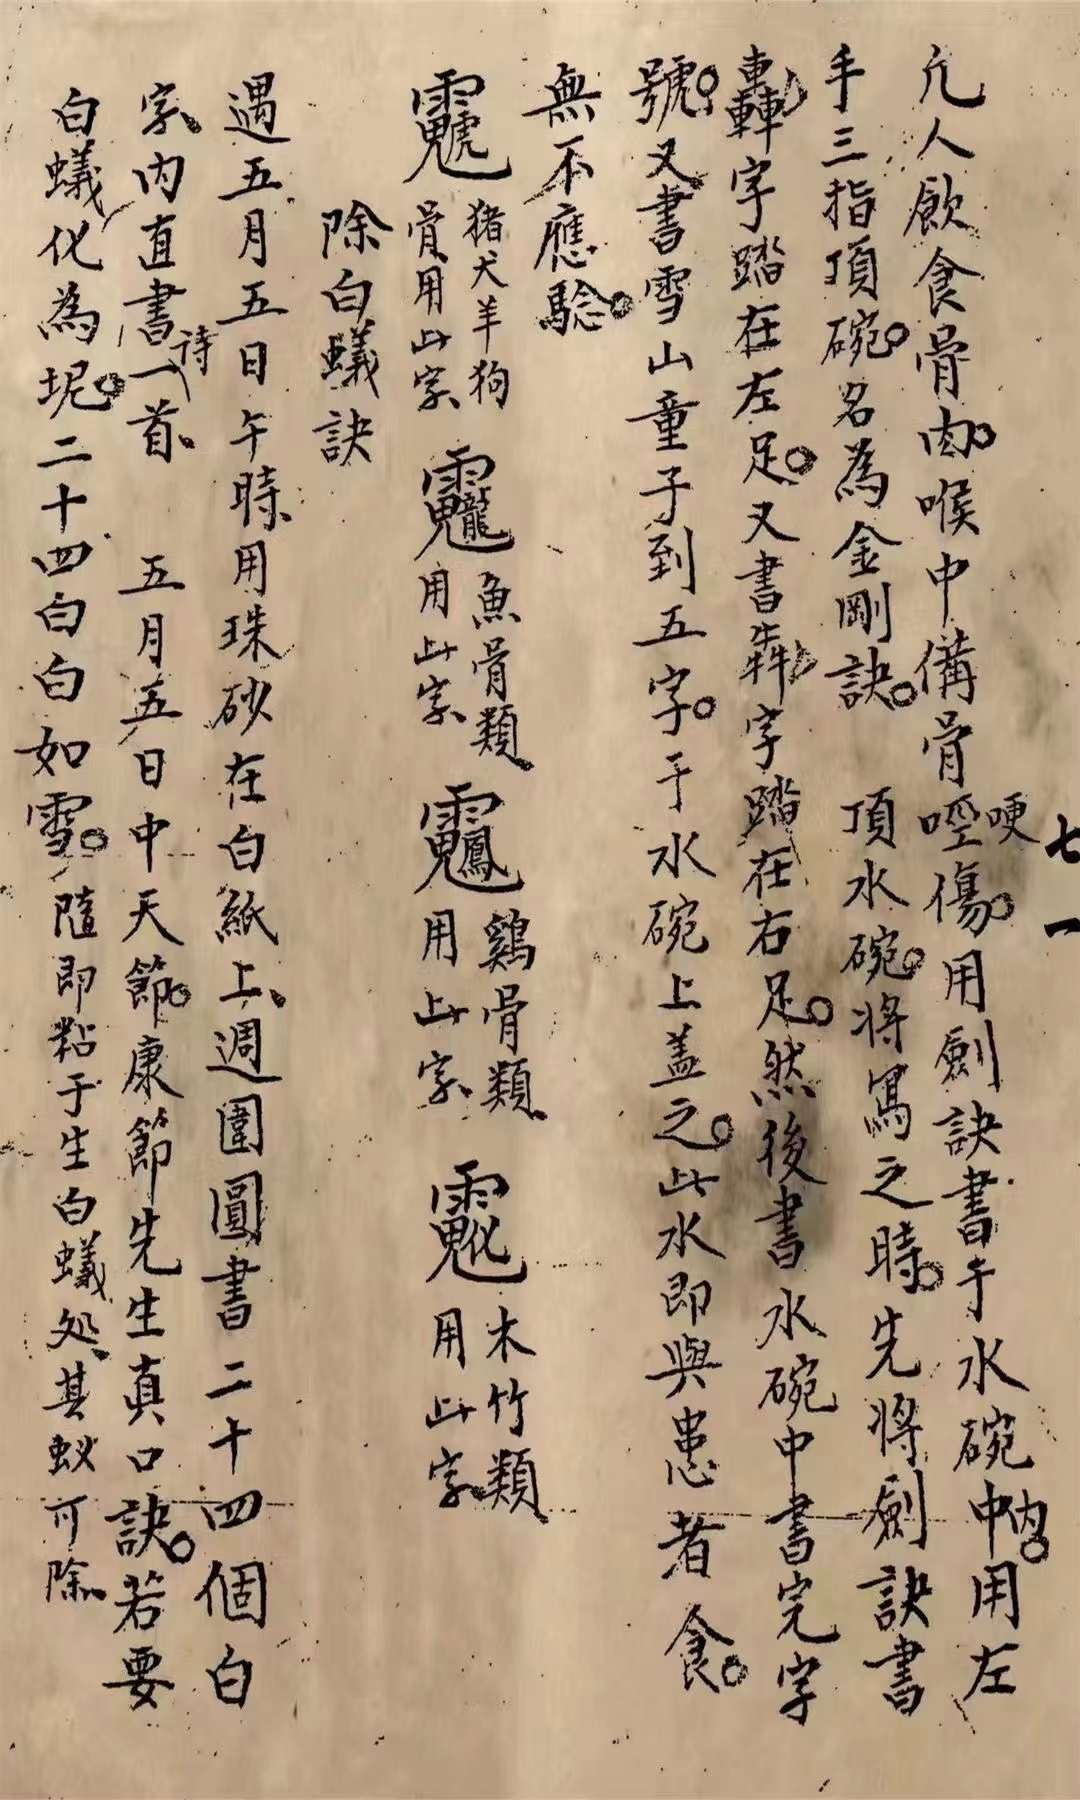 七一
凢人飲食骨肉喉中備骨啞傷哽用劍訣書于水碗中內用左
手三指頂碗名為金剛訣 頂水碗將寫之時先將劍訣書
轟字踏在左足又書犇字踏在右足然後書水碗中書完字
號又書雪山童子到五字于水碗上盖之此水即與患者食
無不應騐
猪犬羊狗骨用此字 魚骨類用此字 鷄骨類用此字 木竹類用此字
除白蟻訣
遇五月五日午時用珠砂在白紙上週圍圓書二十四個白
字內直書一首詩 五月五日中天節康節先生真口訣若要
白蟻化為坭二十四白白如雪隨即粘于生白蟻处其蚁可除